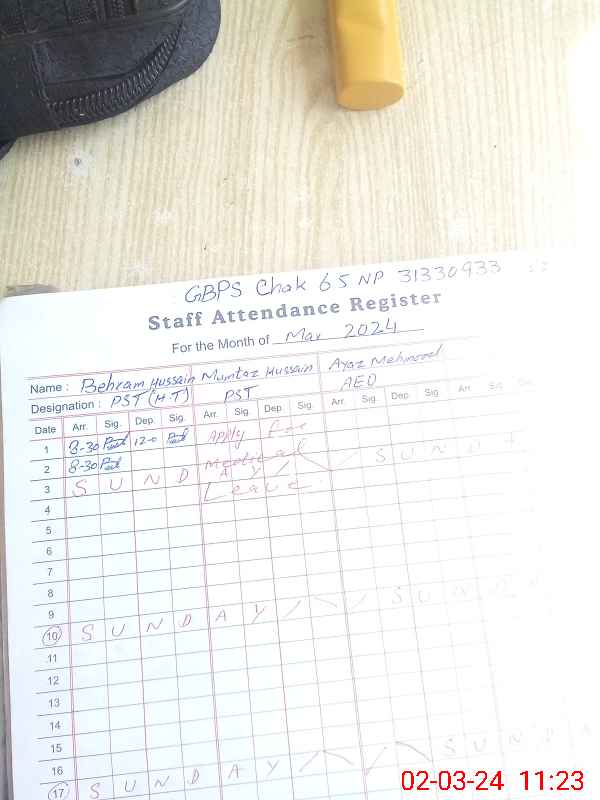 GBPS Chak 65 NP 31330933
Staff Attendance Register
For the Month of Mar 2024
Name : Behram Hussain Mumtaz Hussain Ayaz Mehmood
Designation : PST (H.T) PST AEO
Date Arr. Sig. Dep. Sig. Arr. Sig. Dep. Sig. Arr. Sig. Dep. Sig. Arr. Sig. Dep.
1 8-30 12-0 Apply For
2 8-30 Medical
3 S U N D A Y S U N D A
Leave
4
5
6
7
8
9
10 S U N D A Y S U N D A
11
12
13
14
15
16
17 S U N D A Y S U N D A
02-03-24 11:23